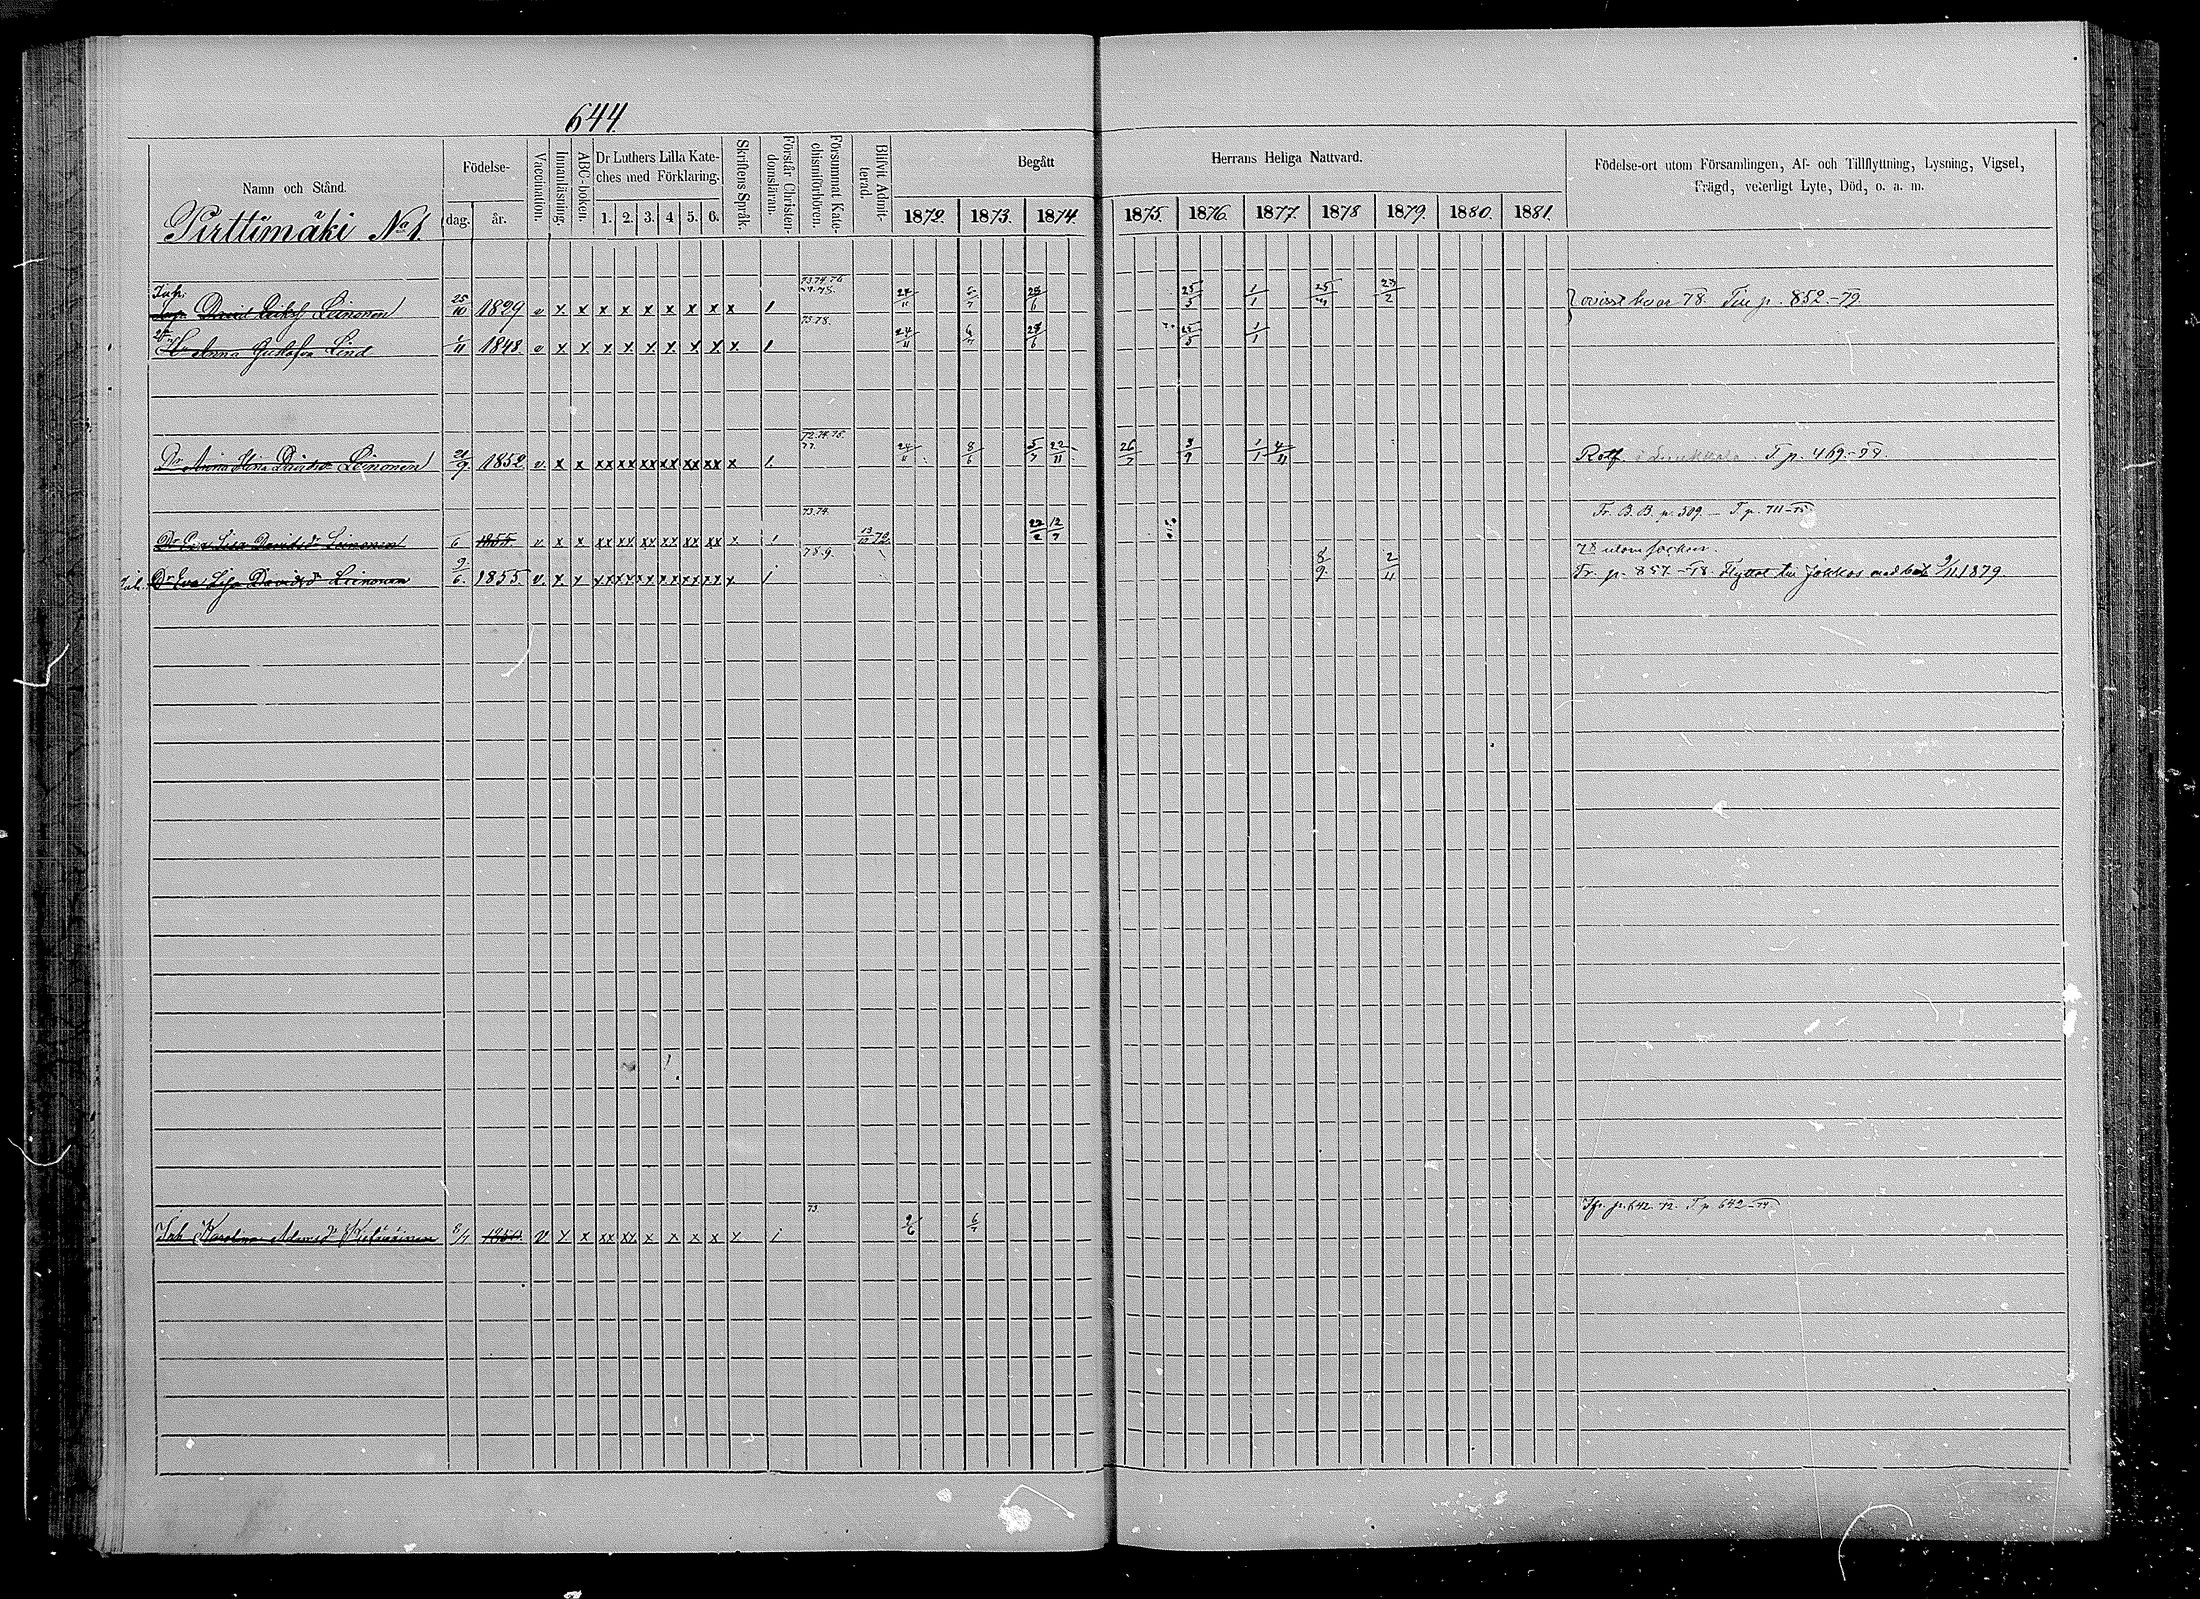 644.
Namn och Stånd.
Födelse-
dag.
år.
Vaccination.
Innanläsning.
ABC-boken.
Dr Luthers Lilla Kate-
ches med Förklaring.
1. 2. 3. 4 5. 6.
Skriftens Språk.
Förstår Christen-
domsläran.
Försummat Kate-
chismiförhören.
Blifvit Admit-
terad.
Begått Herrans Heliga Nattvard.
1872. 1873. 1874. 1875. 1876. 1877. 1878 1879. 1880. 1881.
Födelse-ort utom Församlingen, Af- och Tillflyttning, Lysning, Vigsel,
Frägd, veterligt Lyte, Död, o. a. m.
Pirttimäki No 1.
Inh.
David Eriks Leinonen 25/10 1829 v x x x x x x x x x 73.74.76 24/11 25/5 1/1 78. p. 852.-79
H Anna Gustafva Lind 1848. v x x x x x x x x x 75.78. 24/11 25/5 1/1
Dr Anna Stina Davidsdr Leinonen 21/9 1852 v. x x xx xx xx xx xx xx x 72.74.75. 77. 24/11 8/6 5/7 22/11 26/7 1/1 4/11 T p. 469.-78
Dr Eva Lisa Davidsdr Leinonen 6 1855. v x x xx xx xx xx xx xx x 73.74. 13/10 72 12/7 Tr. B. B. p. 509. — T p. 711-75
Inh. Dr Eva Lisa Davidsdr Leinonen 9/6. 1855. v. x x xx xx xx xx xx xx x 78.9. 8/9. 2/11 78 utom socken.
Tr. p. 857.-78. Flyttat till Jokkas med bet. 9/11 1879.
Inh Karolina Adamsdr 8/1 1850. v x x xx xx x x x x x 73. 9/6 6/7 p. 642.-72. T p. 642-74